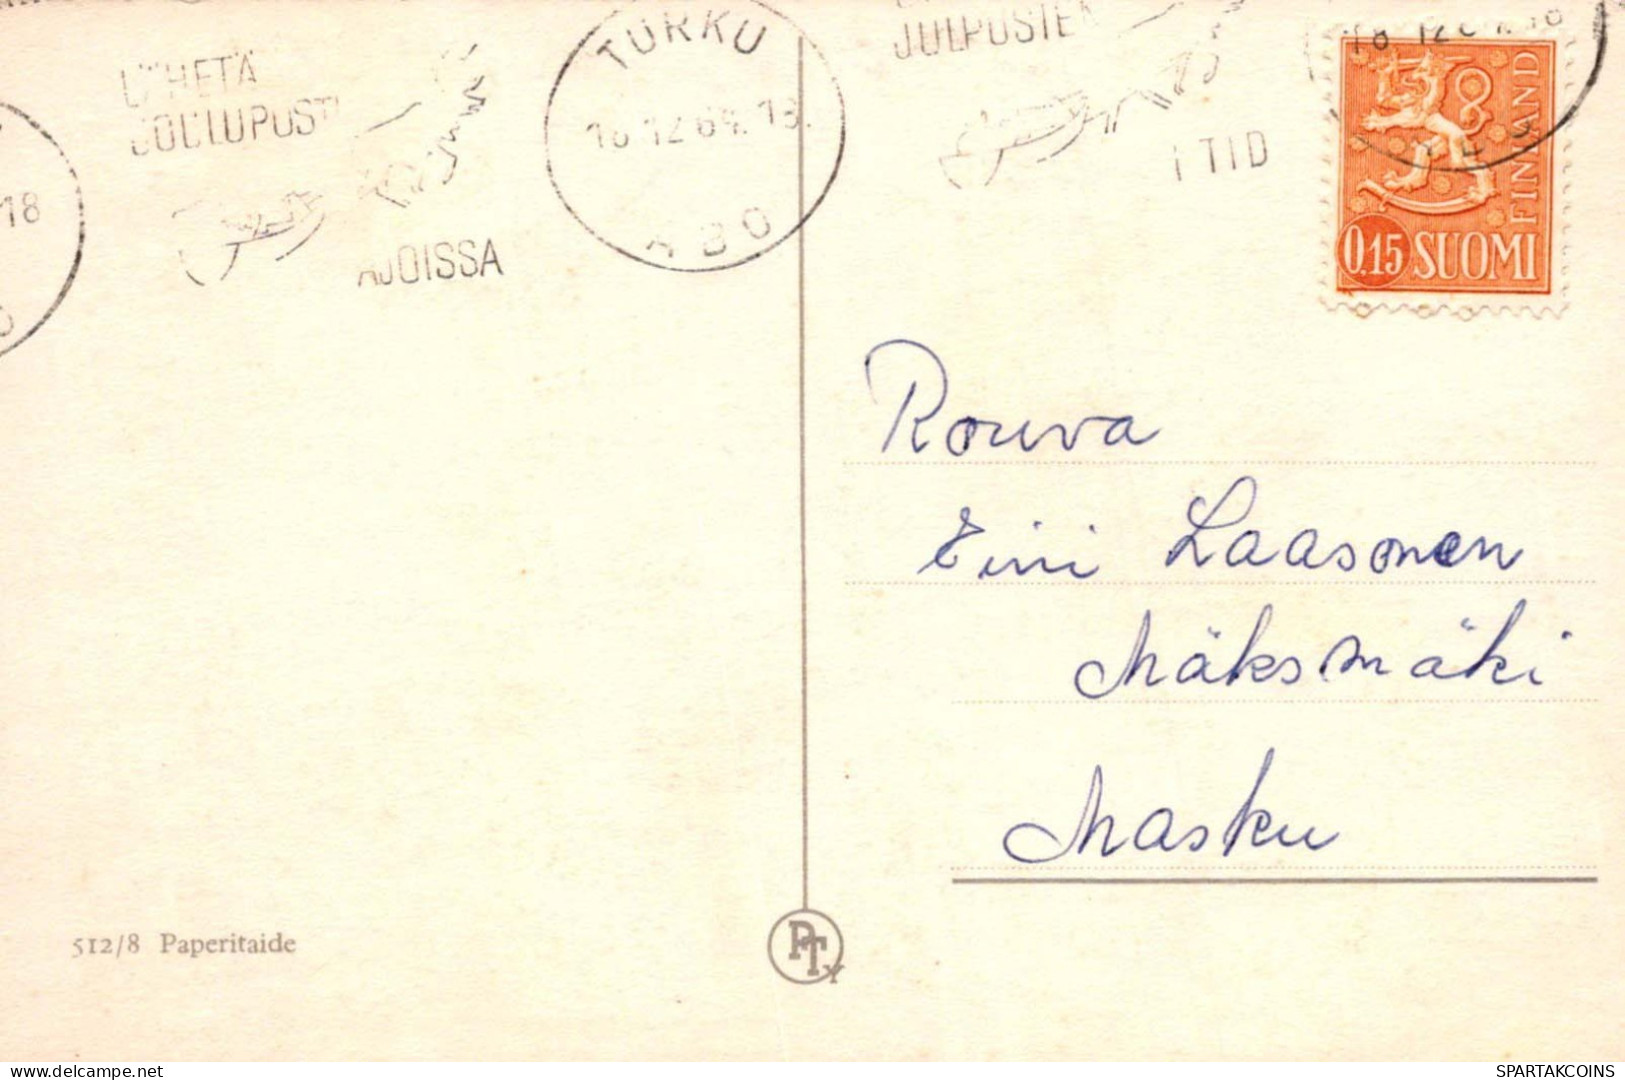 LÄHETÄ
JOULUPOSTI
AJOISSA
TURKU
18.12.64.18.
ÅBO
JULPOSTEN
I TID
18
FINLAND
0,15 SUOMI
Rouva
Eini Laasonen
Mäksmäki
Masku
512/8 Paperitaide
PTY
SPARTAKCOINS